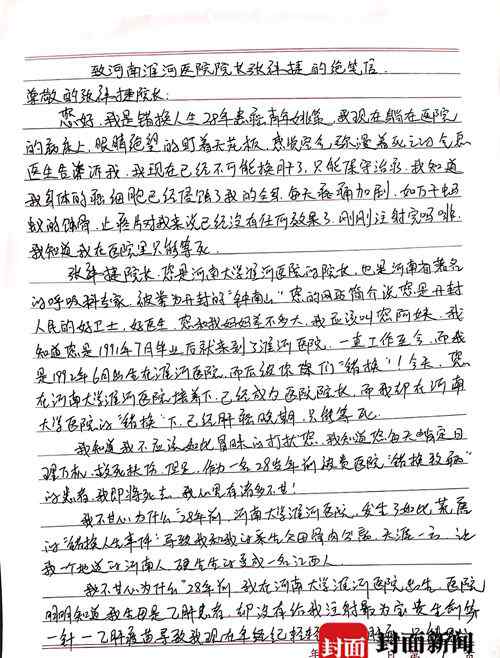 致河南淮河医院院长张祎捷的绝笔信
尊敬的张祎捷院长:
您好,我是错换人生28年患癌青年姚策,我现在躺在医院
的病床上,眼睛绝望的盯着天花板,感觉空气弥漫着死亡的气息
医生告诉我,我现在已经不可能换肝了,只能保守治疗。我知道
我身体的癌细胞已经侵蚀了我的全身,每天疼痛加剧,如万千蚂
蚁的蚀骨,止疼片对我来说已经没有任何效果了,刚刚注射完吗啡
我知道我在医院里只能等死。
张祎捷院长,您是河南大学淮河医院的院长,也是河南省著名
的呼吸科专家,被誉为开封的“钟南山”您的网站简介说您是开封
人民的好卫士,好医生,您和我妈妈差不多大,我应该叫您阿姨。我
知道您是1991年7月毕业后就来到了淮河医院,一直工作至今,而我
是1992年6月出生在淮河医院,而后被你们“错换”!今天,您
在河南大学淮河医院 下,已经成为医院院长,而我却在河南
大学医院的“错换”下,已经肝癌晚期,只能等死。
我知道我不应该如此冒昧的打扰您,我知道您每天 定日
理万机,救死扶伤,但是,作为一名28岁年前被贵医院“错换致病”
的患者,我即将死去,我心里有诸多不甘!
我不甘心为什么“28年前,河南大学淮河医院,发生了如此荒唐
的“错换人生事件”导致我和我的养生父母骨肉分离,天涯一方,让
我一个地道的河南人,硬生生的变成一名江西人。
我不甘心为什么“28年前,我在河南大学淮河医院出生,医院
明明知道我生母是乙肝患者,却没有给我注射最为宝贵生命第
一针—乙肝疫苗导致我现在年纪轻轻
封面 封面新闻
年